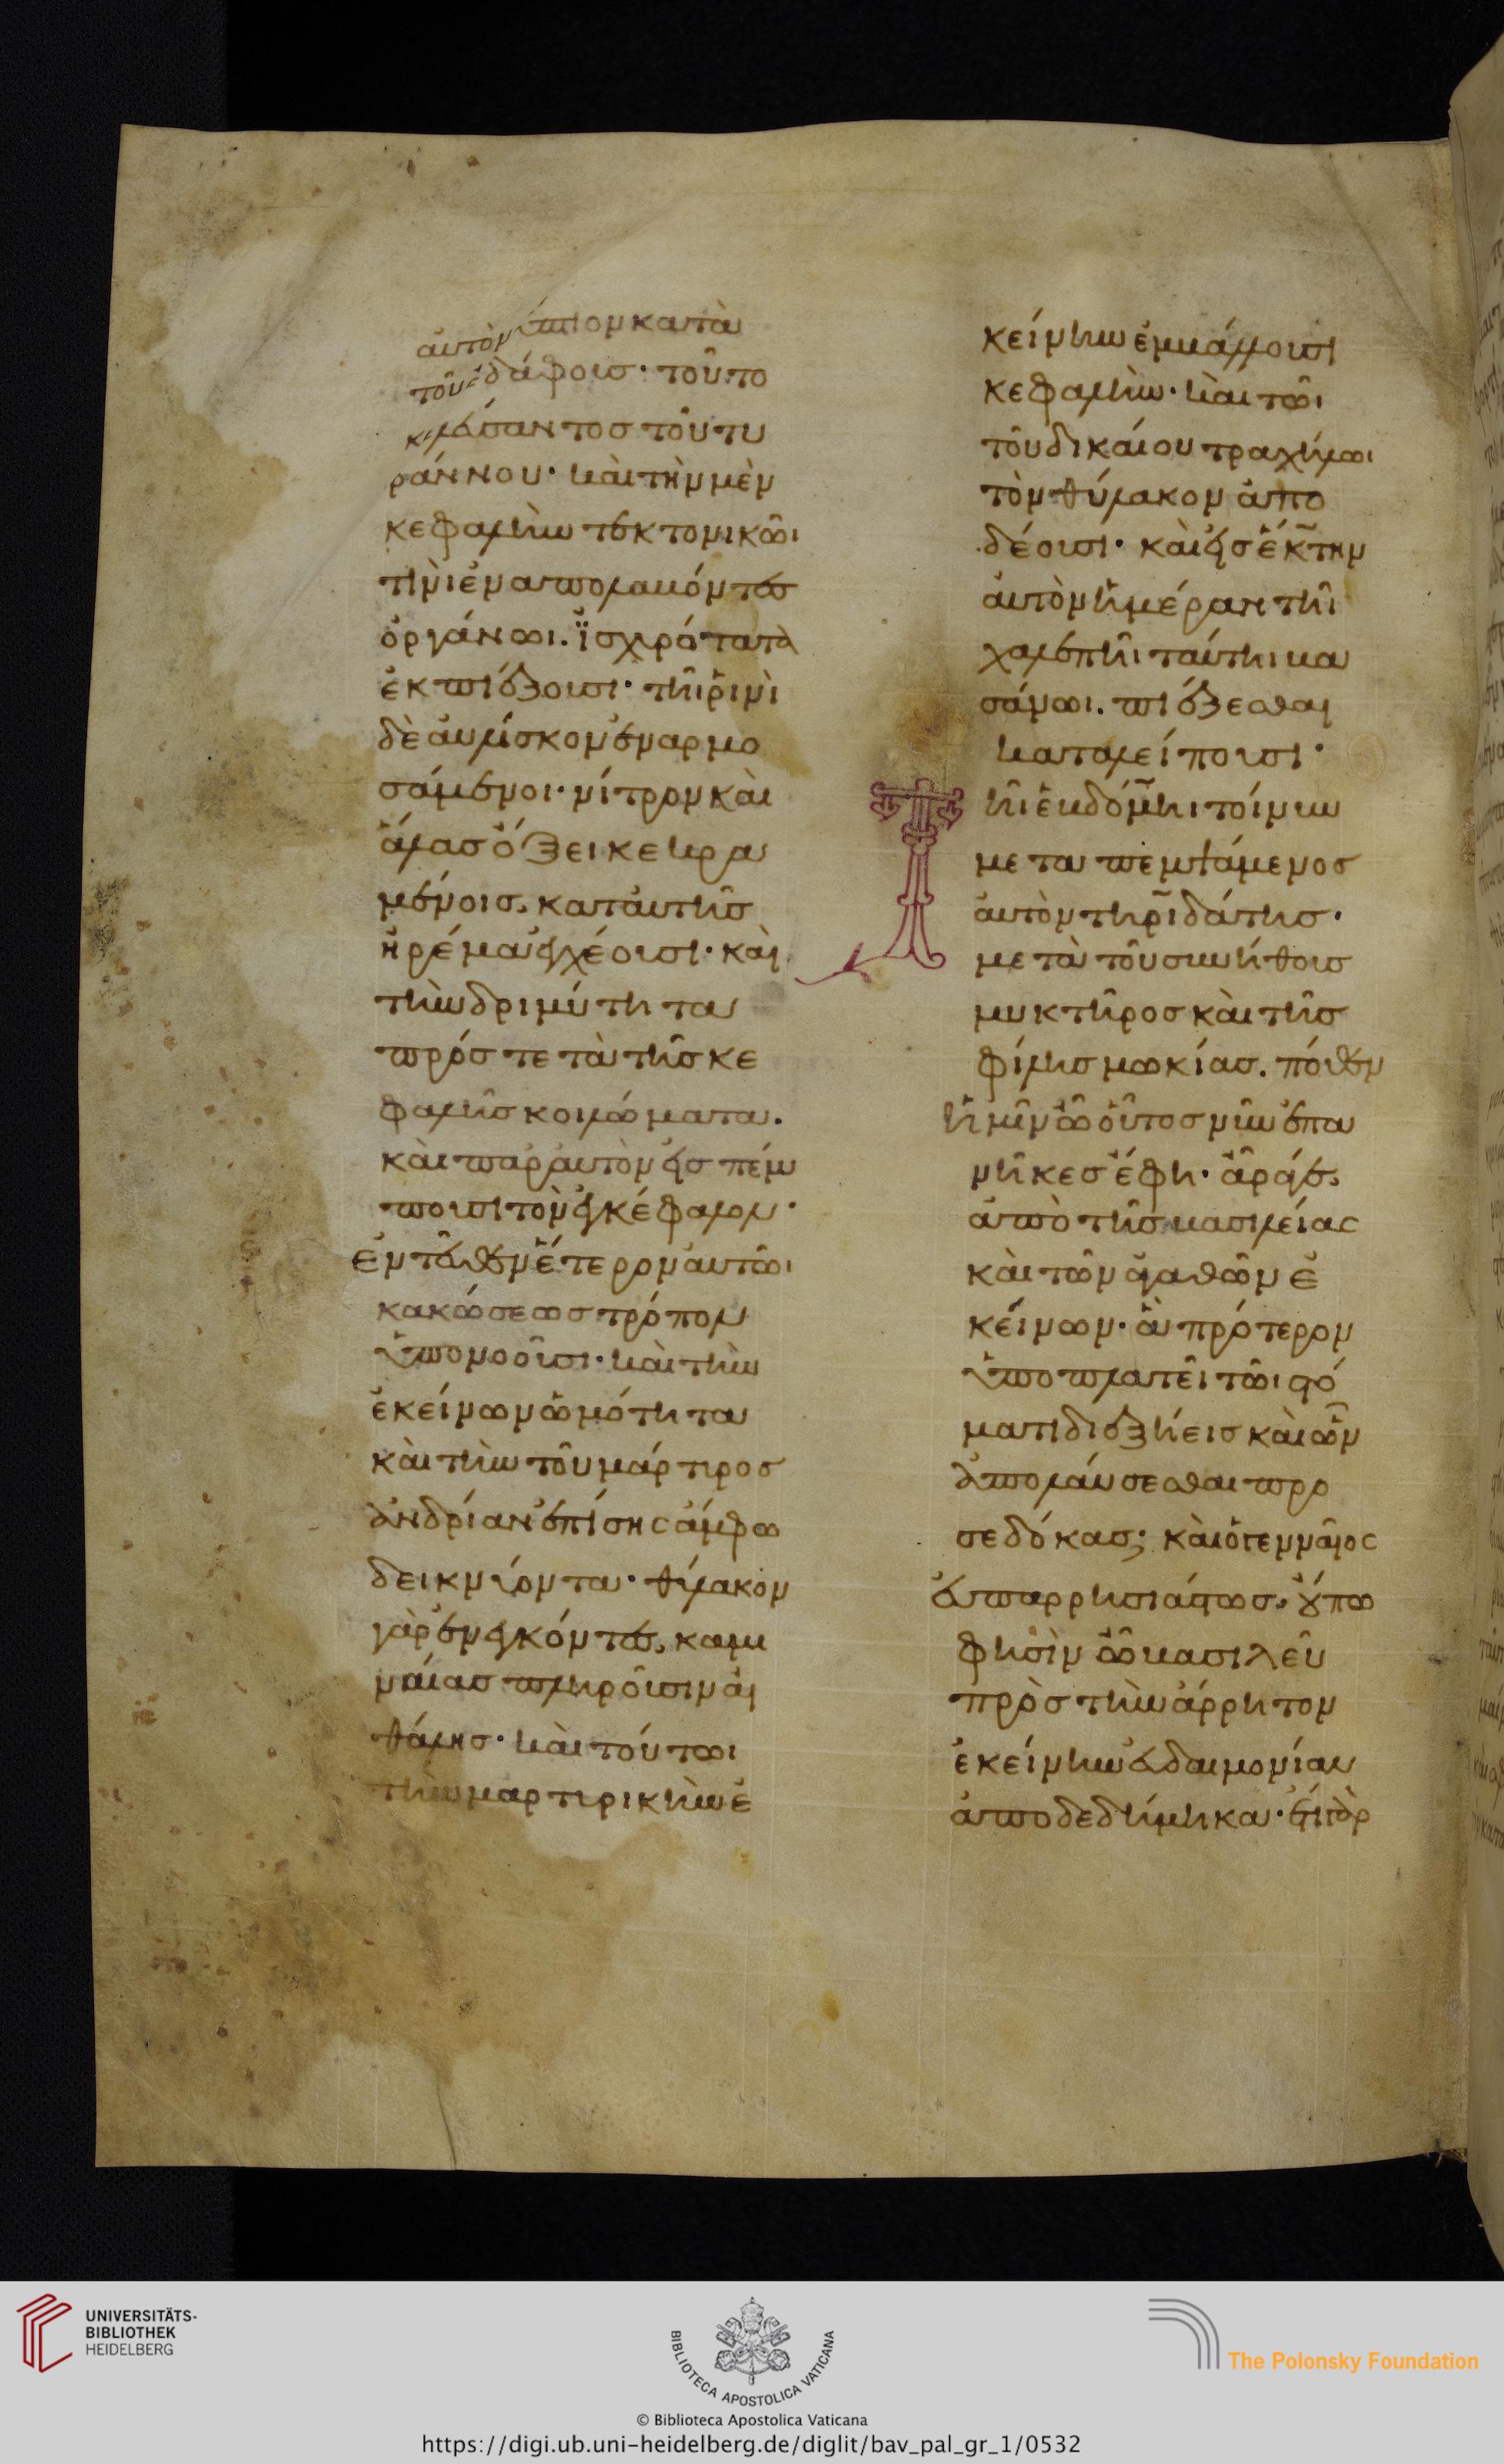 αὐτὸν ὕπτιον κατὰ
τοῦ ἐδάφους· τοῦτο
κελεύσαντος τοῦ τυ
ράννου· καὶ τὴν μὲν
κεφαλὴν τεκτονικῶι
τινὶ ἐναπολαβόντες
ὀργάνωι. ϊσχυρότατα
ἐκπιέζουσι· τῆι ῥινὶ
δὲ αὐλίσκον ἐναρμο
σάμενοι· νίτρον καὶ
ἅλας ὄξει κεκρα
μένοις. κατ αὐτῆς
ἠρέμα ἐγχέουσι· καὶ
τὴν δριμύτητα
πρός τε τὰ τῆς κε
φαλῆς κοιλώματα.
καὶ παρ αὐτὸν ἐς πέμ
πουσι τὸν ἐγκέφαλον·
ἐντεῦθεν ἕτερον αὐτῶι
κακώσεως τρόπον
ὑπονοοῦσι· καὶ τὴν
ἐκείνων ὠμότητα
καὶ τὴν τοῦ μάρτυρος
ἀνδρίαν ἐπίσης ἄμφω
δεικνύοντα· θύλακον
γὰρ ἐνεγκόντες. καμι
νιαίας πληροῦσιν αἰ
θάλης· καὶ τούτωι
τὴν μαρτυρικὴν ἐ
κείνην ἐμβάλλουσι
κεφαλὴν· καὶ τῶι
τοῦ δικαίου τραχήλωι
τὸν θύλακον ἀπο
δέουσι· καὶ ἐς ἕκτην
αὐτὸν ἡμέραν τῆι
χαλεπῆι ταύτηι βα
σάνωι. πιέζεσθαι
καταλείπουσι·
Τῆι ἑβδόμηι τοίνυν
μεταπεμψάμενος
αὐτὸν τηριδάτης·
μετὰ τοῦ συνήθους
μυκτῆρος καὶ τῆς
φίλης μωκίας. πόθεν
ἡμῖν ὦ οὗτος νῦν ἐπα
νῆκες ἔφη· ἆρά γε
ἀπὸ τῆς βασιλείας
καὶ τῶν ἀγαθῶν ἐ
κείνων· ἃ πρότερον
ὑπο πλατεῖ τῶι στό
ματι διεξήεις καὶ ὧν
ἀπολαύσεσθαι προ
σεδόκας; καὶ ὁ γενναῖος
εὐπαρρησιάστως. οὔπω
φησὶν ὦ βασιλεῦ
πρὸς τὴν ἄρρητον
ἐκείνην εὐδαιμονίαν
ἀποδεδήμηκα· ἔτι γὰρ
UNIVERSITÄTS-
BIBLIOTHEK
HEIDELBERG
BIBLIOTECA APOSTOLICA VATICANA
The Polonsky Foundation
© Biblioteca Apostolica Vaticana
https://digi.ub.uni-heidelberg.de/diglit/bav_pal_gr_1/0532